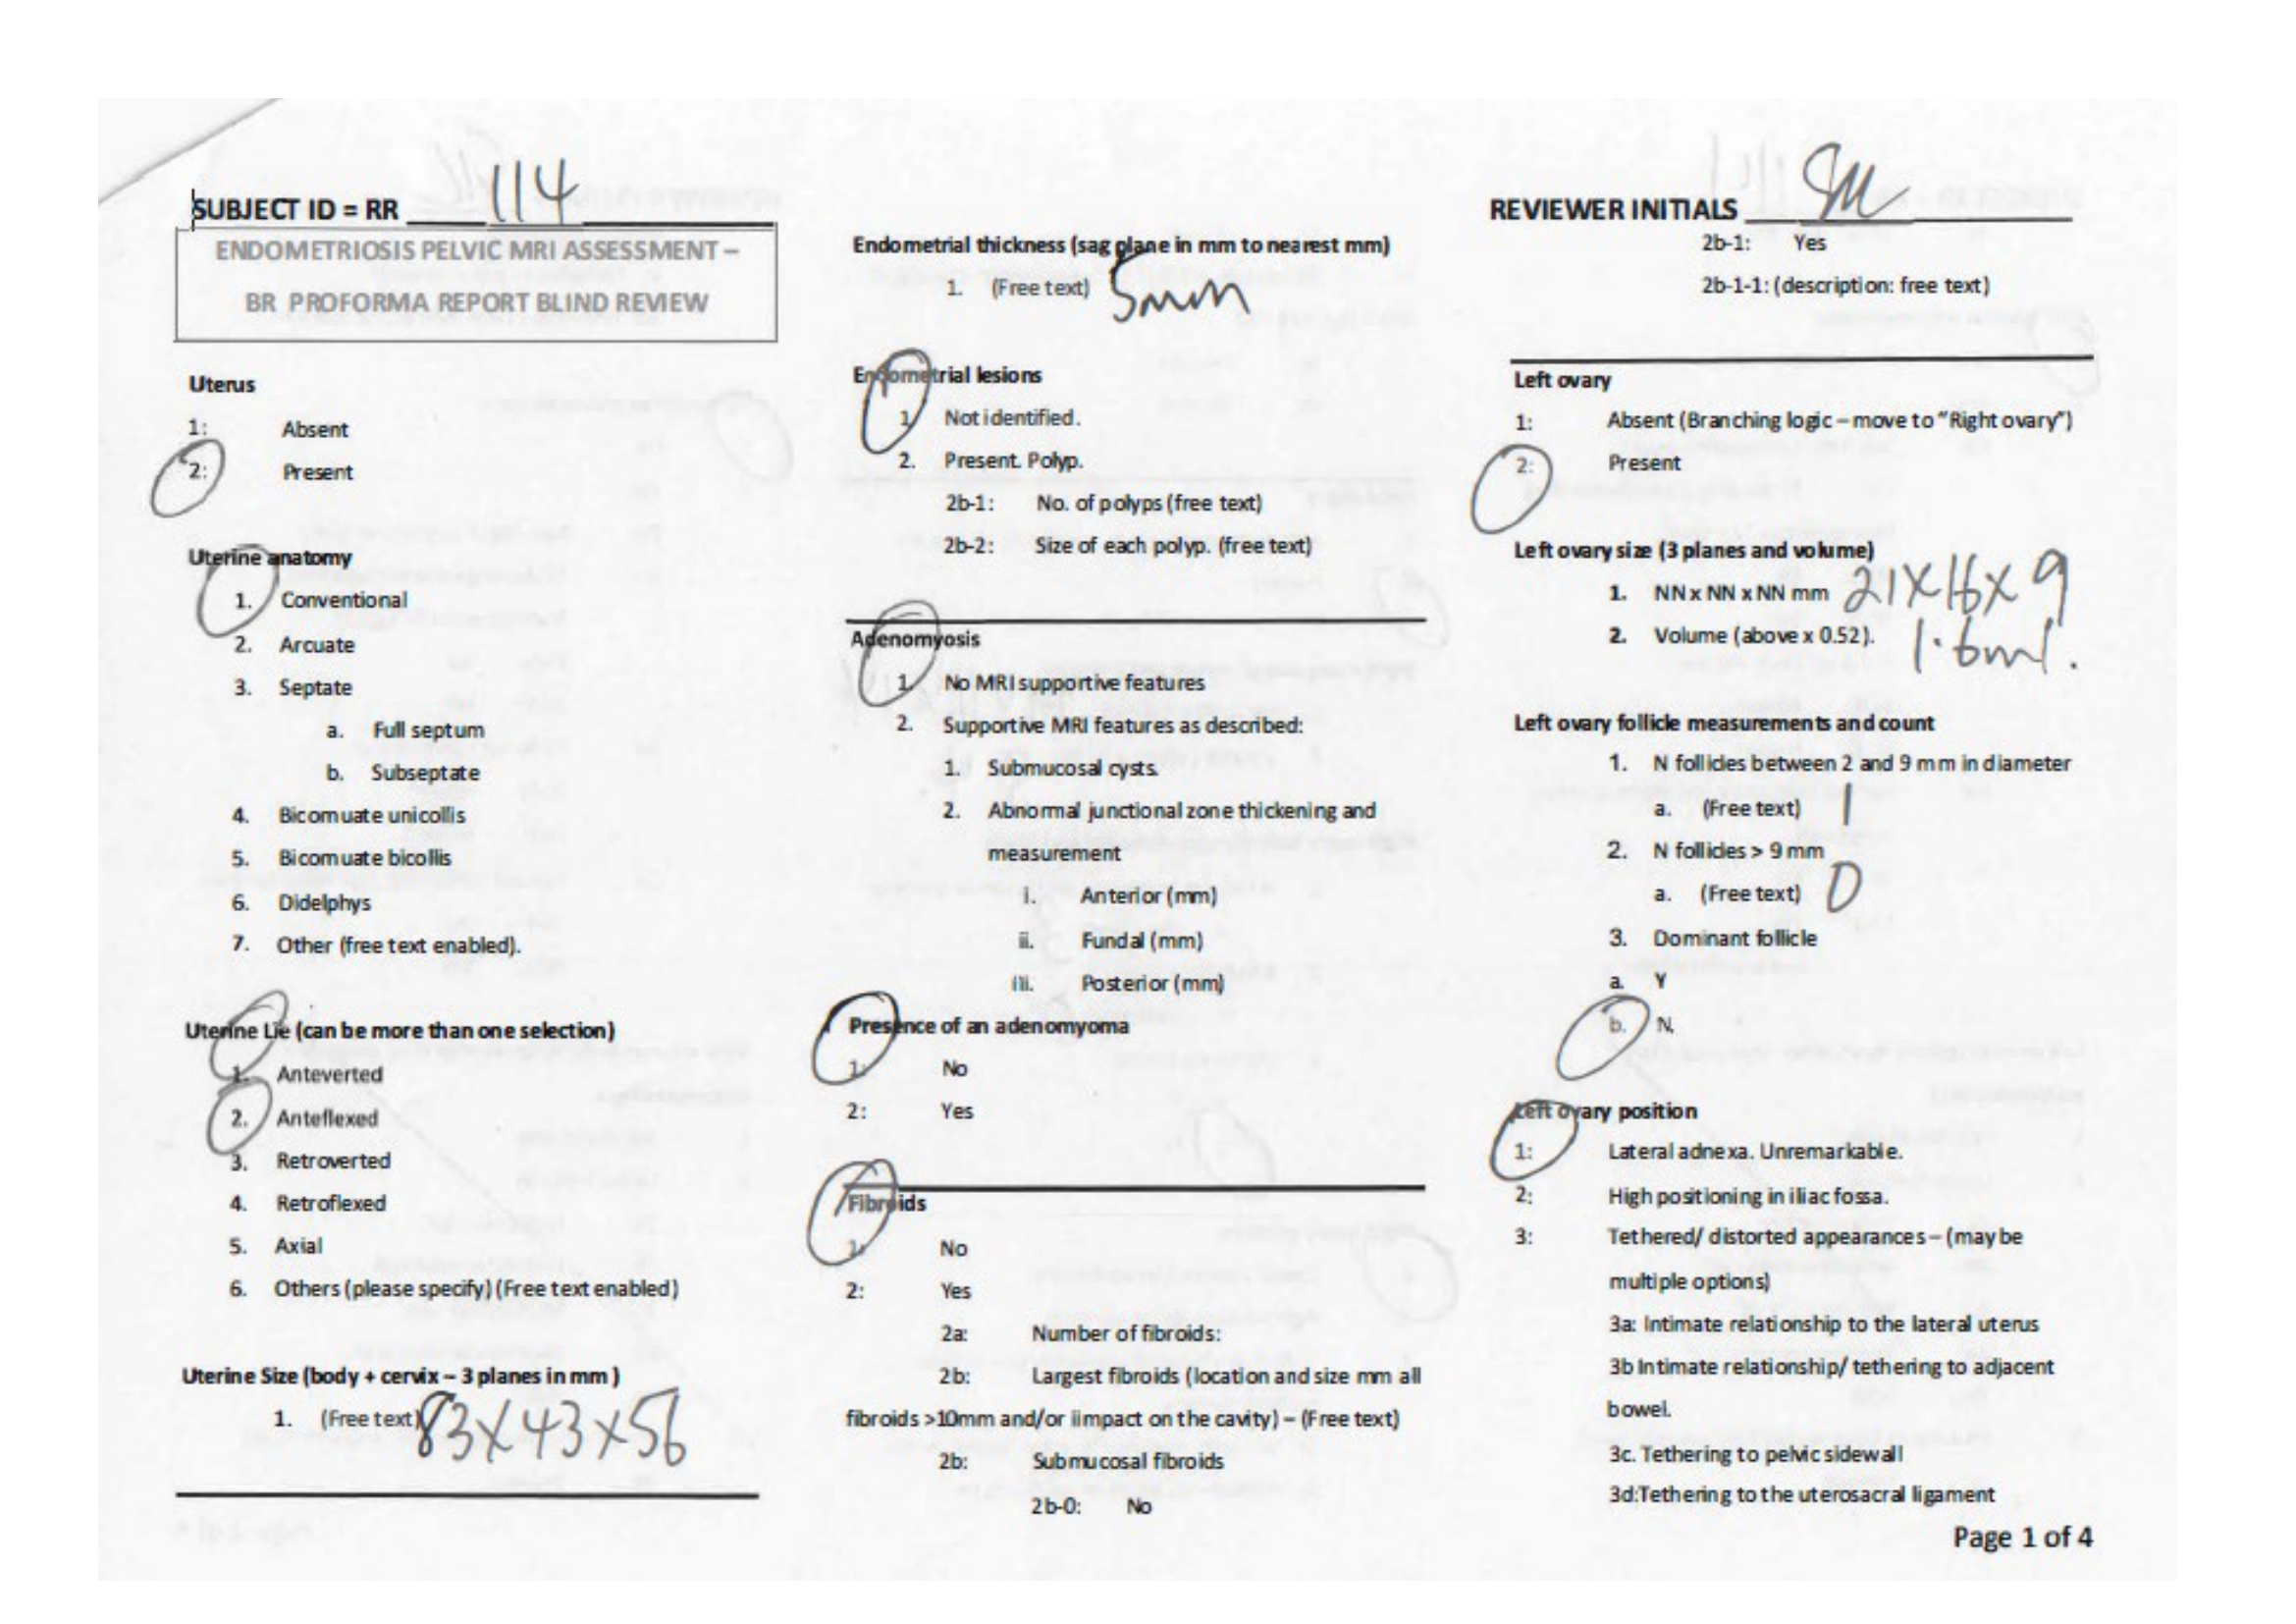 SUBJECT ID = RR 114
ENDOMETRIOSIS PELVIC MRI ASSESSMENT –
BR PROFORMA REPORT BLIND REVIEW
Uterus
1: Absent
2: Present
Uterine anatomy
1. Conventional
2. Arcuate
3. Septate
a. Full septum
b. Subseptate
4. Bicornuate unicollis
5. Bicornuate bicollis
6. Didelphys
7. Other (free text enabled).
Uterine Lie (can be more than one selection)
1. Anteverted
2. Anteflexed
3. Retroverted
4. Retroflexed
5. Axial
6. Others (please specify) (Free text enabled)
Uterine Size (body + cervix – 3 planes in mm )
1. (Free text) 83x43x56
Endometrial thickness (sag plane in mm to nearest mm)
1. (Free text) 5mm
Endometrial lesions
1. Not identified.
2. Present. Polyp.
2b-1: No. of polyps (free text)
2b-2: Size of each polyp. (free text)
Adenomyosis
1. No MRI supportive features
2. Supportive MRI features as described:
1. Submucosal cysts.
2. Abnormal junctional zone thickening and
measurement
i. Anterior (mm)
ii. Fundal (mm)
iii. Posterior (mm)
Presence of an adenomyoma
1: No
2: Yes
Fibroids
1: No
2: Yes
2a: Number of fibroids:
2b: Largest fibroids (location and size mm all
fibroids >10mm and/or iimpact on the cavity) – (Free text)
2b: Submucosal fibroids
2b-0: No
REVIEWER INITIALS SM
2b-1: Yes
2b-1-1: (description: free text)
Left ovary
1: Absent (Branching logic – move to "Right ovary")
2: Present
Left ovary size (3 planes and volume)
1. NN x NN x NN mm 21x16x9
2. Volume (above x 0.52). 1.6ml.
Left ovary follicle measurements and count
1. N follicles between 2 and 9 mm in diameter
a. (Free text) 1
2. N follicles > 9 mm
a. (Free text) 0
3. Dominant follicle
a. Y
b. N.
Left ovary position
1: Lateral adnexa. Unremarkable.
2: High positioning in iliac fossa.
3: Tethered/ distorted appearances – (may be
multiple options)
3a: Intimate relationship to the lateral uterus
3b Intimate relationship/ tethering to adjacent
bowel.
3c. Tethering to pelvic sidewall
3d:Tethering to the uterosacral ligament
Page 1 of 4